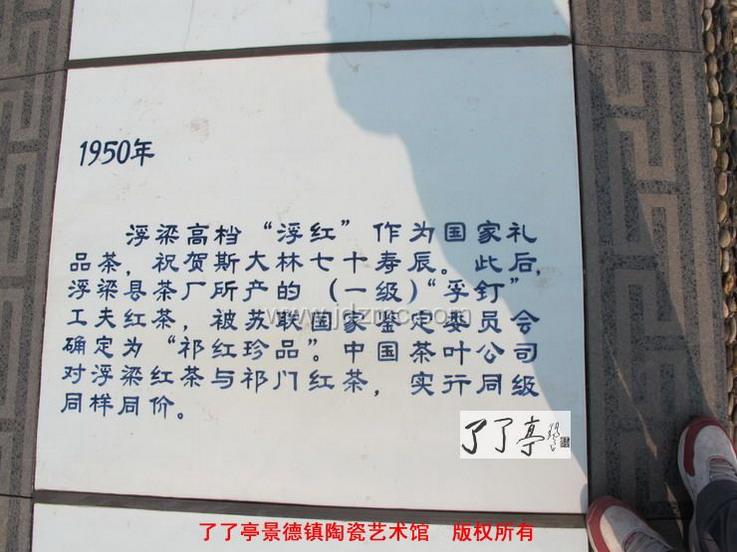 1950年
浮梁高档“浮红”作为国家礼
品茶，祝贺斯大林七十寿辰。此后，
浮梁县茶厂所产的（一级）“孚钉”
工夫红茶，被苏联国家鉴定委员会
确定为“祁红珍品”。中国茶叶公司
对浮梁红茶与祁门红茶，实行同级
同样同价。
www.jdzmc.com
了了亭
了了亭景德镇陶瓷艺术馆 版权所有